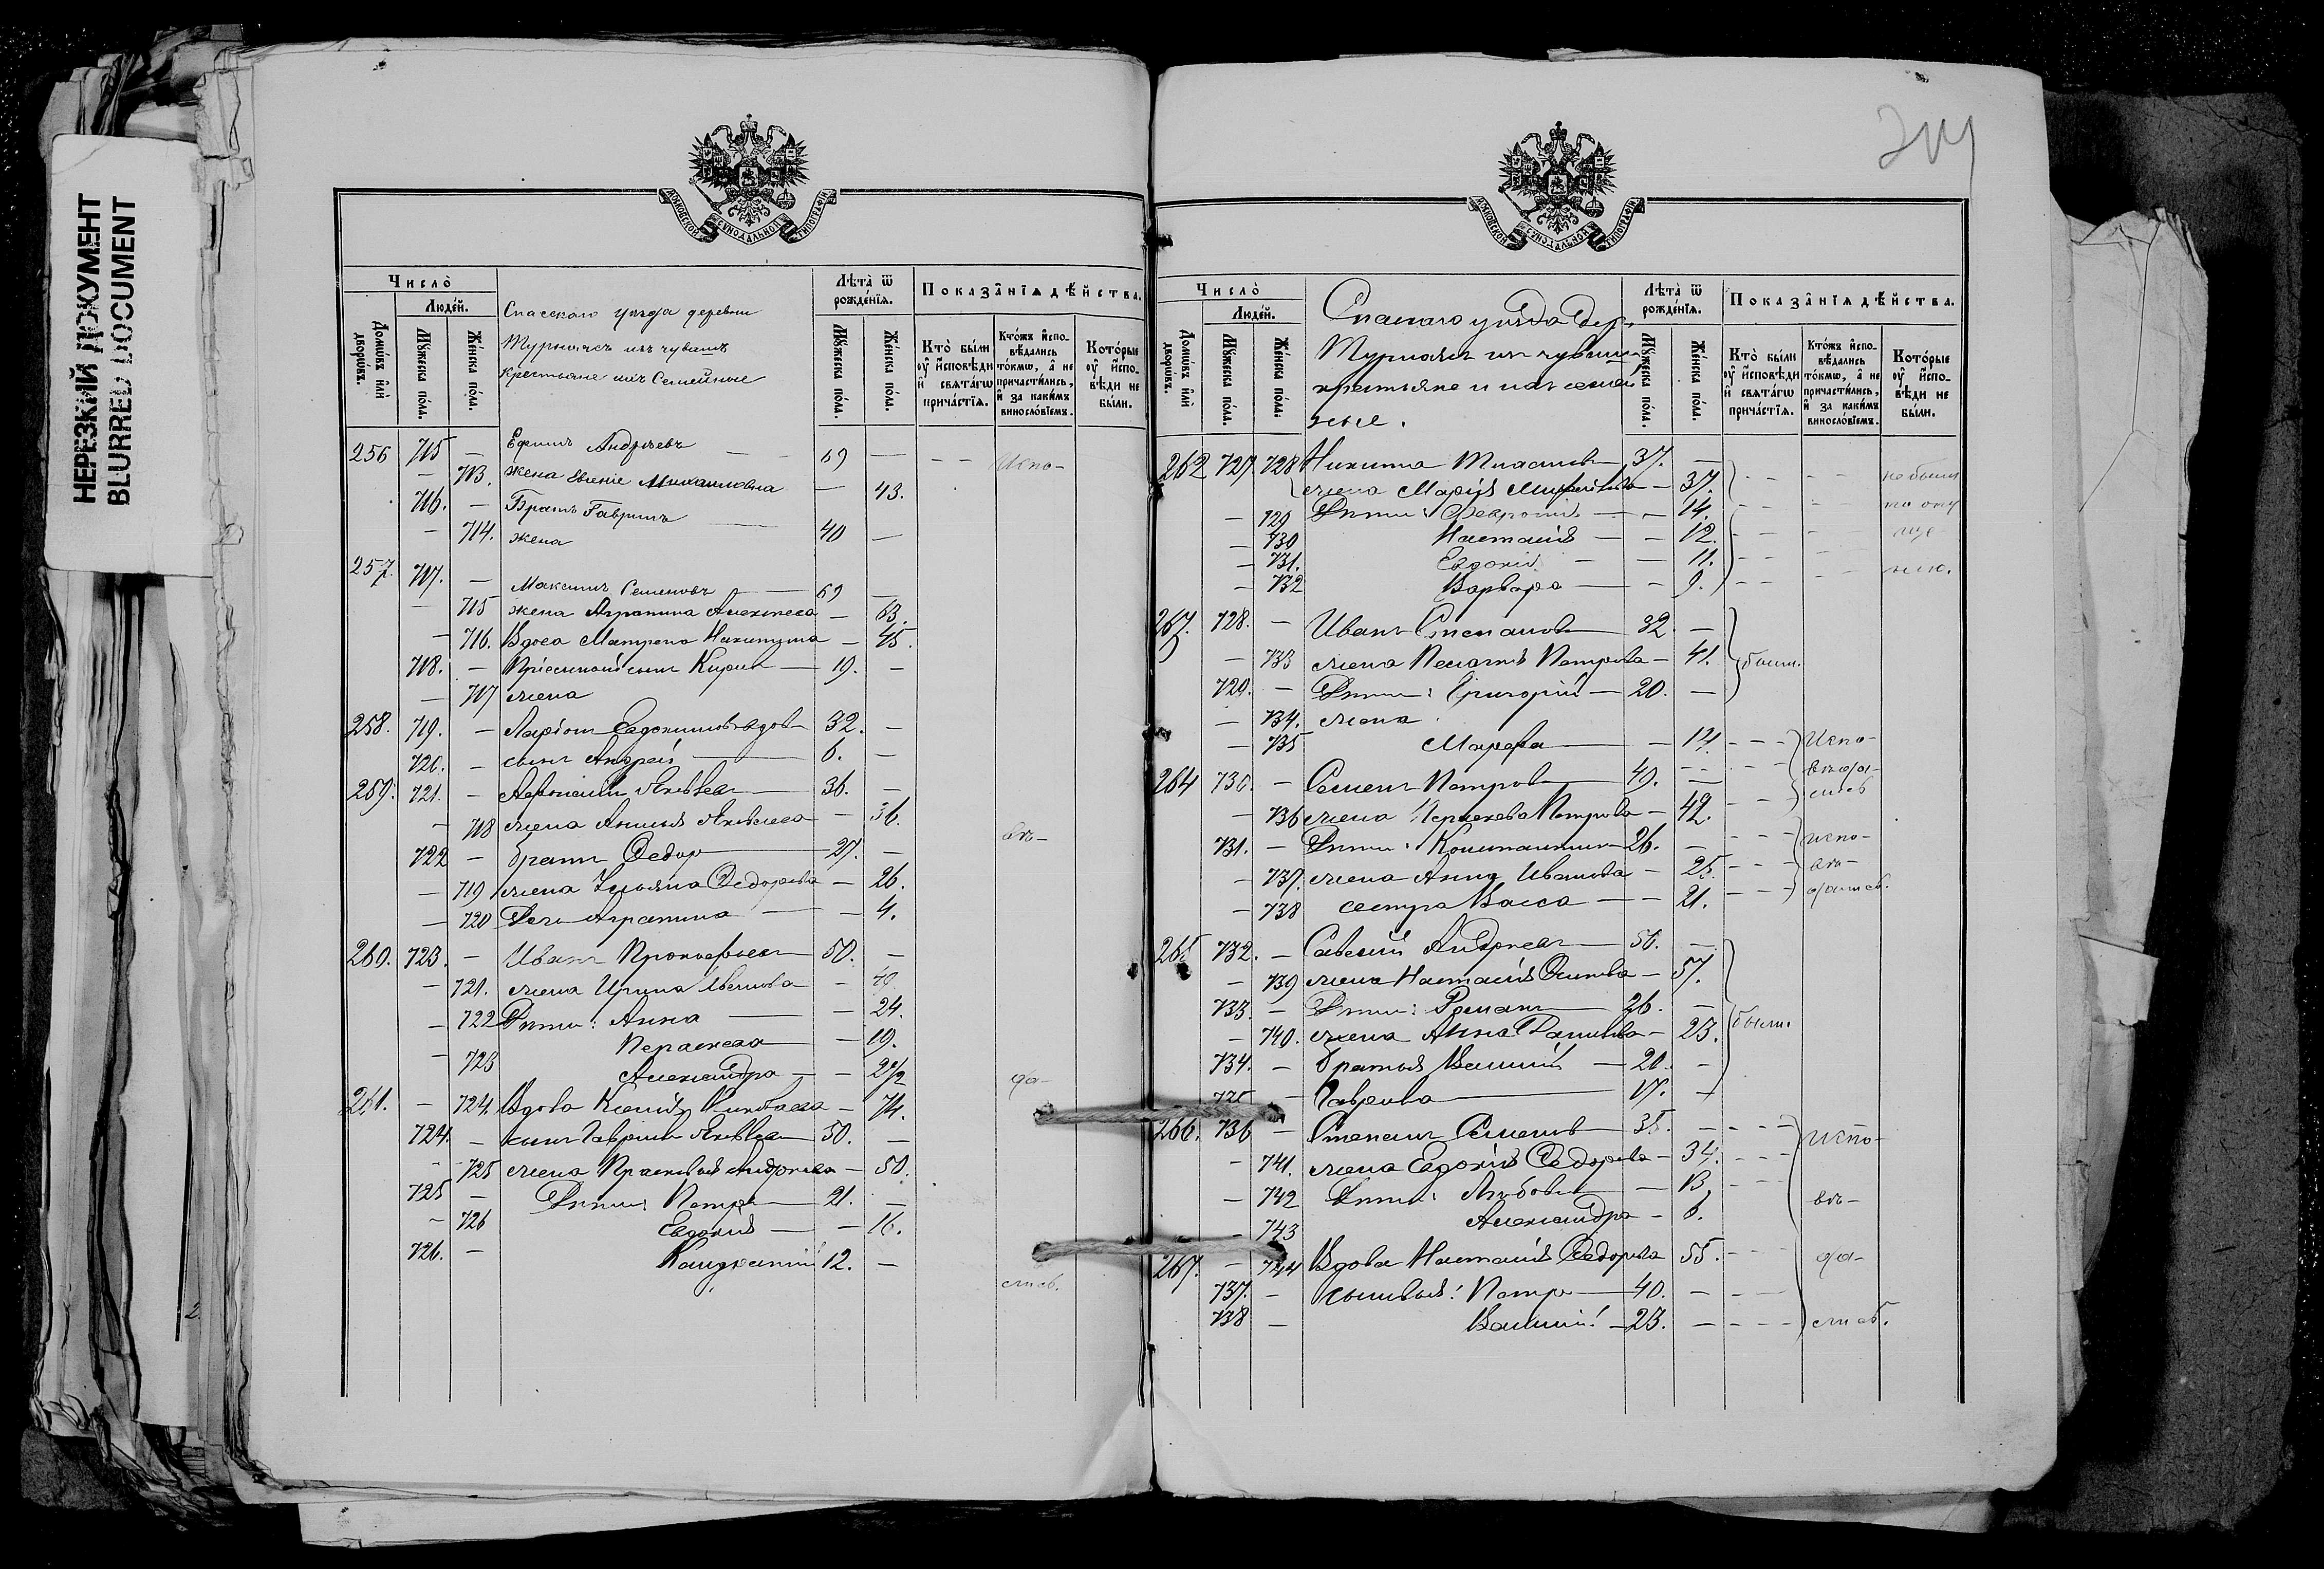 НЕРЕЗКИЙ ДОКУМЕНТ
BLURRED DOCUMENT
МОСКОВСКОЙ СѴНОДАЛЬНОЙ ТИПОГРАФІИ
Число̀
Людей.
Домѡвъ и҆лѝ дворѡвъ.
Мꙋжеска по́ла.
Же́нска по́ла.
Спасскаго уѣзда деревни
Турнаясъ изъ чувашъ
крестьяне ихъ Семейные
Лѣта̀ ѿ рожде́нїѧ.
Мꙋжеска по́ла.
Же́нска по́ла.
Показа̂нїѧ дѣ́йства.
Кто̀ бы́ли оу҆ и҆сповѣ́ди и҆ свѧта́гѡ прича́стїѧ.
Кто́жъ и҆сповѣ́дались то́кмѡ, а҆ не причасти́лись, и҆ за каки́мъ винослові́емъ.
Кото́рые оу҆ и҆сповѣ́ди не бы́ли.
256 715 — Ефимъ Андреевъ — — 69 — — — Испо-
— 713. жена Евгенія Михаиловна — 43.
716. — Братъ Гавріилъ — 40 —
— 714. жена
257. 717. — Максимъ Семеновъ — 69 —
— 715 жена Агрипина Алексеева — 63.
— 716. Вдова Матрена Никитина — 45.
718. — Пріемной сынъ Кирилъ — 19. —
— 717 жена
258. 719. — Ларіонъ Евдокимовъ вдовъ 32. —
720. — сынъ Андрей — 6. —
259. 721. — Афанасій Яковлевъ — 36. —
— 718 жена Анисія Яковлева — 36.
722 — братъ Федоръ — 27. — вѣ-
— 719 жена Ульяна Федорова — 26.
— 720 Дочь Агрипина — — 4.
260. 723. — Иванъ Прокофьевъ — 50. —
— 721. жена Ирина Иванова — 49
— 722 Дѣти: Анна — — 24.
— 723 Параскева — 19.
Александра — — 2 1/2 да-
261. — 724. Вдова Ксенія — 74.
724. — сынъ Гавріилъ Яковлевъ — 50. —
— 725 жена Прасковья Андреева — 50.
725 — Дѣти: Петръ — 21. —
— 726 Евдокія — — 16.
726. — 12. — лись.
Число̀
Людей.
Домѡвъ и҆лѝ дворѡвъ.
Мꙋжеска по́ла.
Же́нска по́ла.
Спасскаго уѣзда дер.
Турнаясъ изъ чувашъ
крестьяне и ихъ семей
ные.
Лѣта̀ ѿ рожде́нїѧ.
Мꙋжеска по́ла.
Же́нска по́ла.
Показа̂нїѧ дѣ́йства.
Кто̀ бы́ли оу҆ и҆сповѣ́ди и҆ свѧта́гѡ прича́стїѧ.
Кто́жъ и҆сповѣ́дались то́кмѡ, а҆ не причасти́лись, и҆ за каки́мъ винослові́емъ.
Кото́рые оу҆ и҆сповѣ́ди не бы́ли.
262 727 728 Никита — 37. —
жена Марія — 37. — — — не были
— 729 Дѣти: Февронія — — 14. — — — по опу
— 730 Настасія — — 12. — — — ще
— 731. Евдокія — — 11. — —
— 732 Варвара — — 9. — — — нію.
263. 728. — Иванъ Степановъ — 32. —
— 733 жена Пелагея Петрова — 41. были.
729. — Дѣти: Григорій — 20. —
— 734. жена
— 735 Марфа — — 14. — — — Испо-
264 730. — Семенъ Петровъ — 49. — — — вѣда-
— 736 жена Параскева Петрова — 42. — — лись
731. — Дѣти: Константинъ — 26. — — — — испо-
— 737. жена Анна Иванова — 25. — — — вѣ-
— 738 сестра Васса — — 21. — — — дались.
265 732. — Савелій Андреевъ — 56. —
— 739 жена Настасія Осипова — 57.
733. — Дѣти: Романъ — 26. —
— 740. жена Анна Данилова — 23. были.
734. — братья Василій — 20. —
735 — Гаврила — 17. —
266. 736 — Степанъ Семеновъ — 35. — — — — испо-
— 741. жена Евдокія Федорова — 34. — — —
— 742 Дѣти: Любовь — — 13 — — вѣ-
— 743 Александра — 6.
267. — 744 Вдова Настасія Федорова 55. — — — да-
737. — сыновья: Петръ — 40. — — —
738 — Василій — 23. — — — — лись.